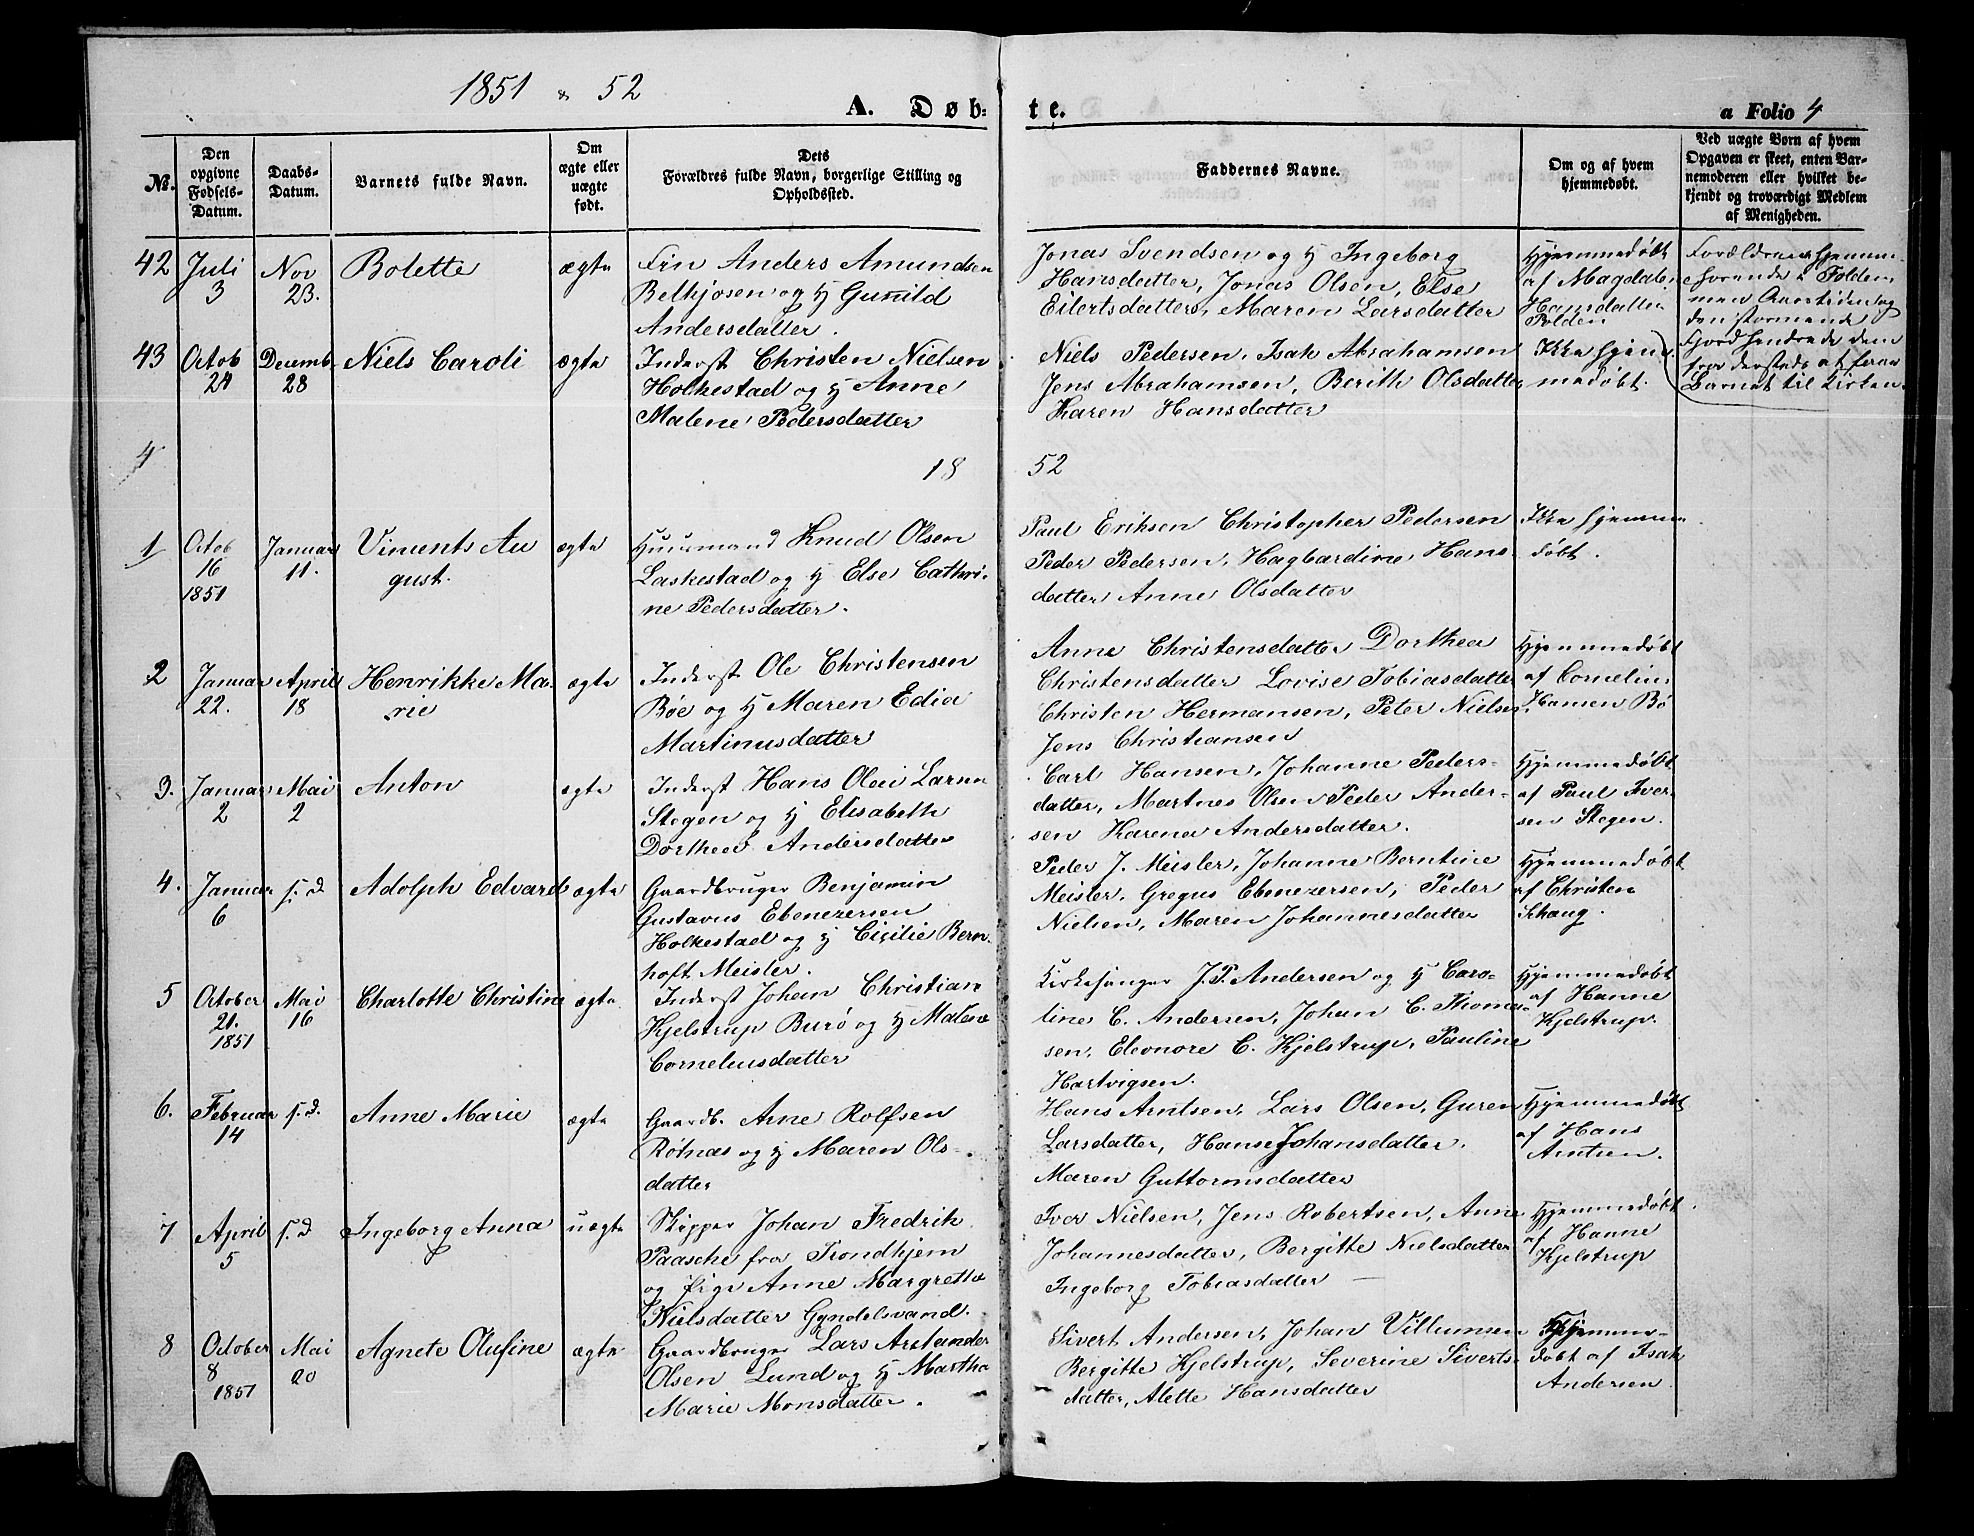 1851 & 52
A. Døbte.
a Folio 4
No.
Den opgivne Fødsels-Datum.
Daabs-Datum.
Barnets fulde Navn.
Om ægte eller uægte født.
Dets Forældres fulde Navn, borgerlige Stilling og Opholdssted.
Faddernes Navne.
Om og af hvem hjemmedøbt.
Ved uægte Børn af hvem Opgaven er skeet, enten Barnemoderen eller hvilket bekjendt og troværdigt Medlem af Menigheden.
42
Juli
3
Nov
23.
Bolette
ægte
Fin Anders Amundsen
Belkjosen og H Gunild
Andersdatter.
Jonas Svendsen og H Ingeborg
Hansdatter, Jonas Olsen, Else
Eilertsdatter, Maren Larsdatter
Hjemmedøbt
af Magdalen
Hansdatter
Folden
Forældrene hjemm-
hørende i Folden
men Aarstiden og
den stormende
Fjord hindrede dem
fra dersteds at føre
Barnet til Kirken.
43
Octob
24
Decemb
28
Niels Caroli
ægte
Inderst Christen Nielsen
Holkestad og H Anne
Malene Pedersdatter
Niels Pedersen, Isak Abrahamsen
Jens Abrahamsen, Berith Olsdatter
Karen Hansdatter
Ikke hjem-
medøbt.
4
18 52
1
Octob
16
1851
Januar
11.
Vinents Au
gust.
ægte
Huusmand Knud Olsen
Laskestad og H Else Cathri-
ne Pedersdatter.
Paul Eriksen Christopher Pedersen
Peder Pedersen, Hagbardine Hans-
datter Anne Olsdatter
Ikke hjemme
døbt.
2
Januar
22.
April
18
Henrikke Ma-
rie
ægte
Inderst Ole Christensen
Bøe og H Maren Edia
Martinusdatter
Anne Christensdatter Dorthea
Christensdatter Lovise Tobiasdatter
Christen Hermansen, Peter Nielsen
Jens Christiansen
Hjemmedøbt
af Cornelius
Hansen Bø
3.
Januar
2
Mai
2
Anton
ægte
Inderst Hans Olai Larsen
Stegen og H Elisabeth
Dorthea Andersdatter
Carl Hansen, Johanne Peders-
datter, Martnes Olsen Peder Ander-
sen Karena Andersdatter.
Hjemmedøbt
af Paul Iver-
sen Stegen.
4.
Januar
6
s. d
Adolph Edvard
ægte
Gaardbruger Benjamin
Gustavus Ebenezersen
Holkestad og H Cicilie Bern-
hoft Meisler.
Peder J. Meisler, Johanne Berntine
Meisler, Gregus Ebenezersen, Peder
Nielsen, Maren Johannesdatter
Hjemmedøbt
af Christen
Schaug.
5
October
21.
1851
Mai
16
Charlotte Christine
ægte
Inderst Johan Christian
Kjelstrup Burø og H Malene
Corneliusdatter
Kirkesanger J. P. Andersen og H Caro-
line C. Andersen, Johan C. Thome-
sen, Eleonore C. Kjelstrup, Pauline
Hartvigsen.
Hjemmedøbt
af Hanne
Kjelstrup.
6.
Februar
14
s. d.
Anne Marie
ægte
Gaardb. Arne Rolfsen
Røtnas og H Maren Ols-
datter
Hans Arntsen, Lars Olsen, Guren
Larsdatter, Hanse Johansdatter.
Maren Guttormsdatter
Hjemmedøbt
af Hans
Arntsen.
7
April
5
s. d
Ingeborg Anna
uægte
Skipper Johan Fredrik
Paasche fra Trondhjem
og Pige Anne Margrethe
Nielsdatter Gyndelsvand.
Iver Nielsen, Jens Robertsen, Anne
Johannesdatter, Bergitte Nielsdatter
Ingeborg Tobiasdatter
Hjemmedøbt
af Hanne
Kjelstrup
8
October
8
1851
Mai
20
Agnete Olufine
ægte
Gaardbruger Lars Arctander
Olsen Lund og H Martha
Marie Monsdatter.
Sivert Andersen, Johan Villumsen
Bergitte Kjelstrup, Severine Siverts-
datter, Alette Hansdatter
Hjemme-
døbt af Isak
Andersen